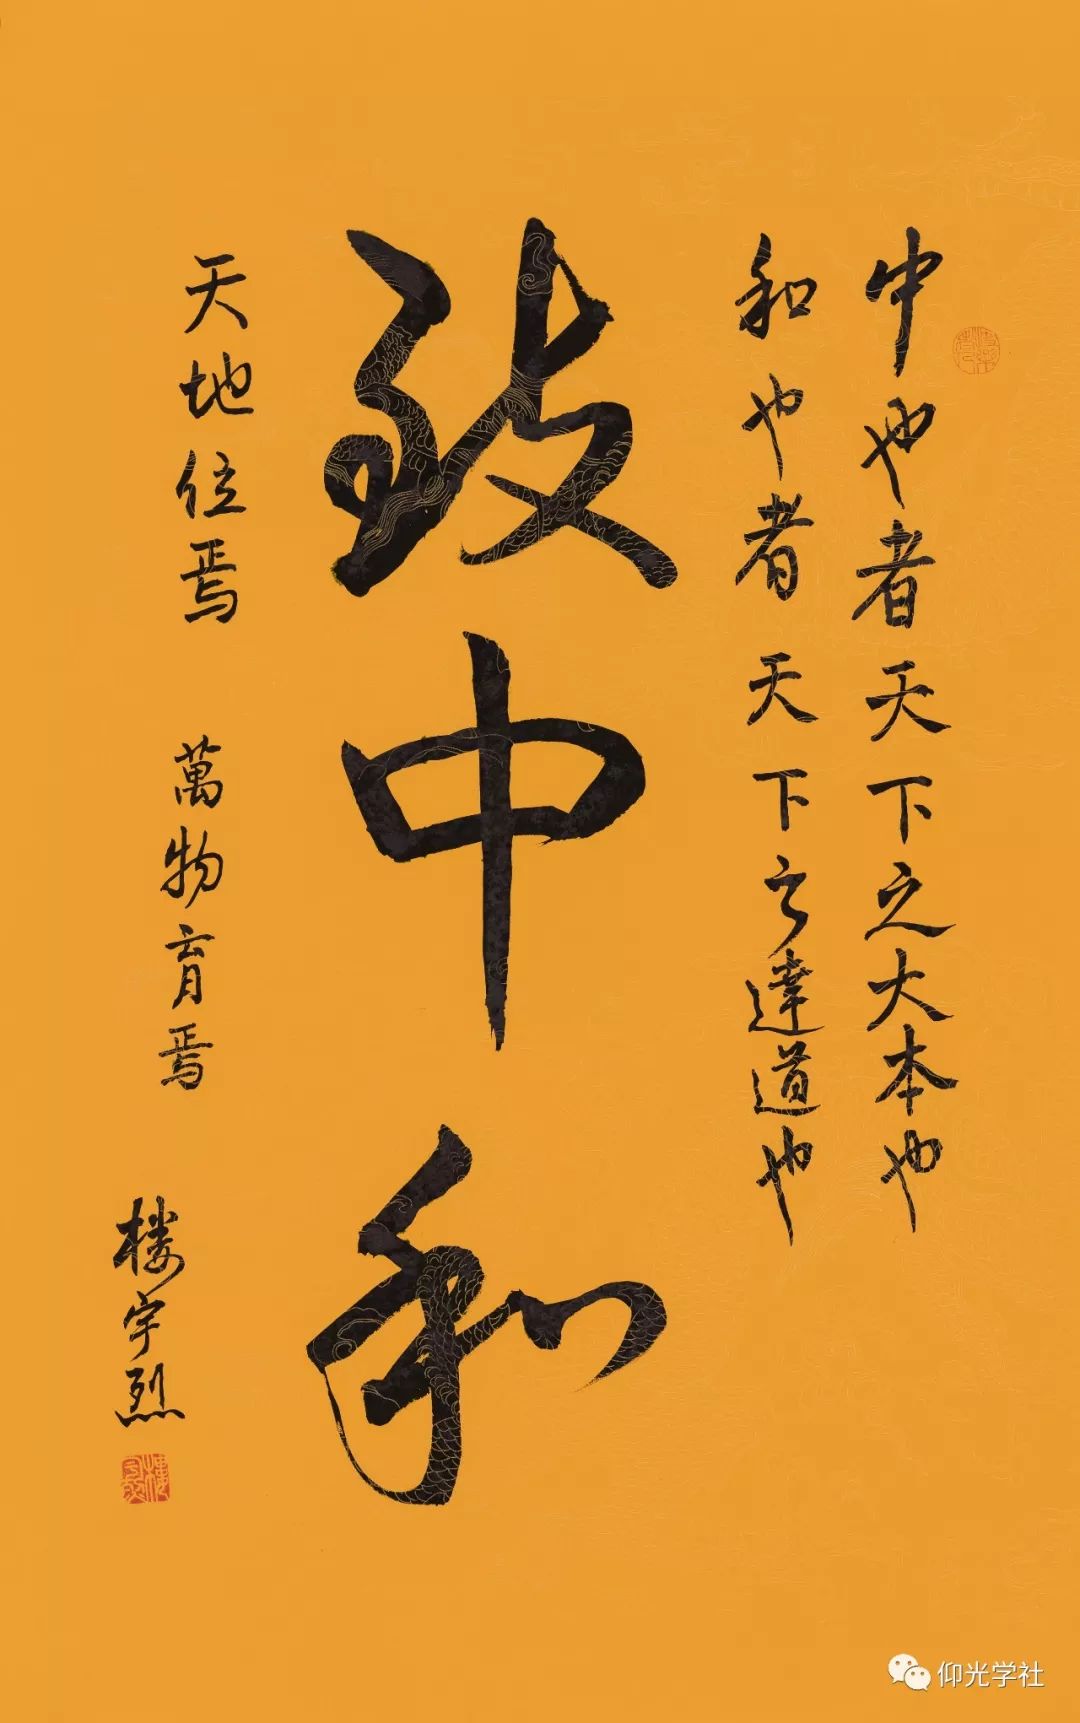 中也者天下之大本也
和也者天下之達道也
致中和
天地位焉 萬物育焉
楼宇烈
仰光学社